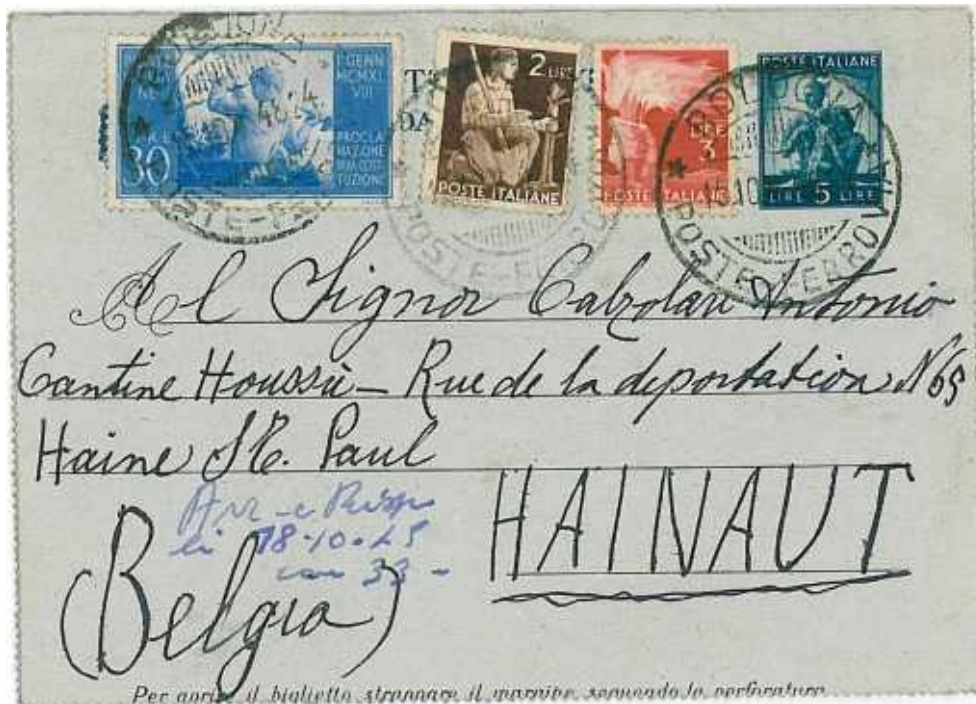 I GENN
MCMXL
VIII
30
PROCLA
MAZIONE
DELLA COSTI
TUZIONE
2 LIRE
POSTE ITALIANE
LIRE
3
POSTE ITALIANE
POSTE ITALIANE
LIRE 5 LIRE
BOLOGNA
48.4
POSTE-FERROVIA
Al Signor Calzolari Antonio
Cantine Houssu - Rue de la deportation N 65
Haine St. Paul
HAINAUT
18-10-
33 -
(Belgio)
Per aprire il biglietto strappare il margine seguendo le perforature